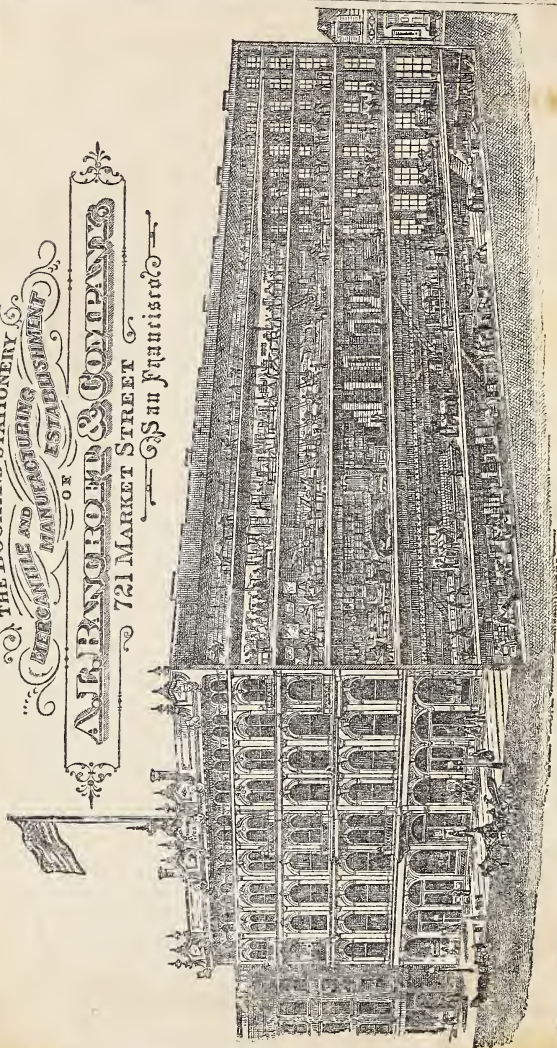 THE BOOK AND STATIONERY
MERCANTILE AND MANUFACTURING
ESTABLISHMENT
OF
A. L. BANCROFT & COMPANY,
721 MARKET STREET
San Francisco